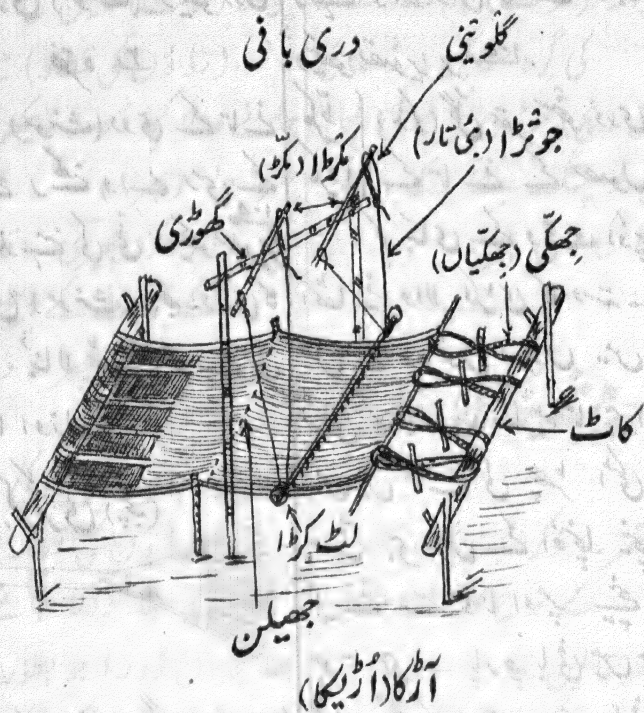 دری بافی
گلوٹینی
جوتڑا (بئی تار)
مکڑا (مکڑ)
گھوڑی
جھکّی (جھکّیاں)
کاٹ
لٹ کڑا
جھیلن
آڑکا (اُڑیکا)